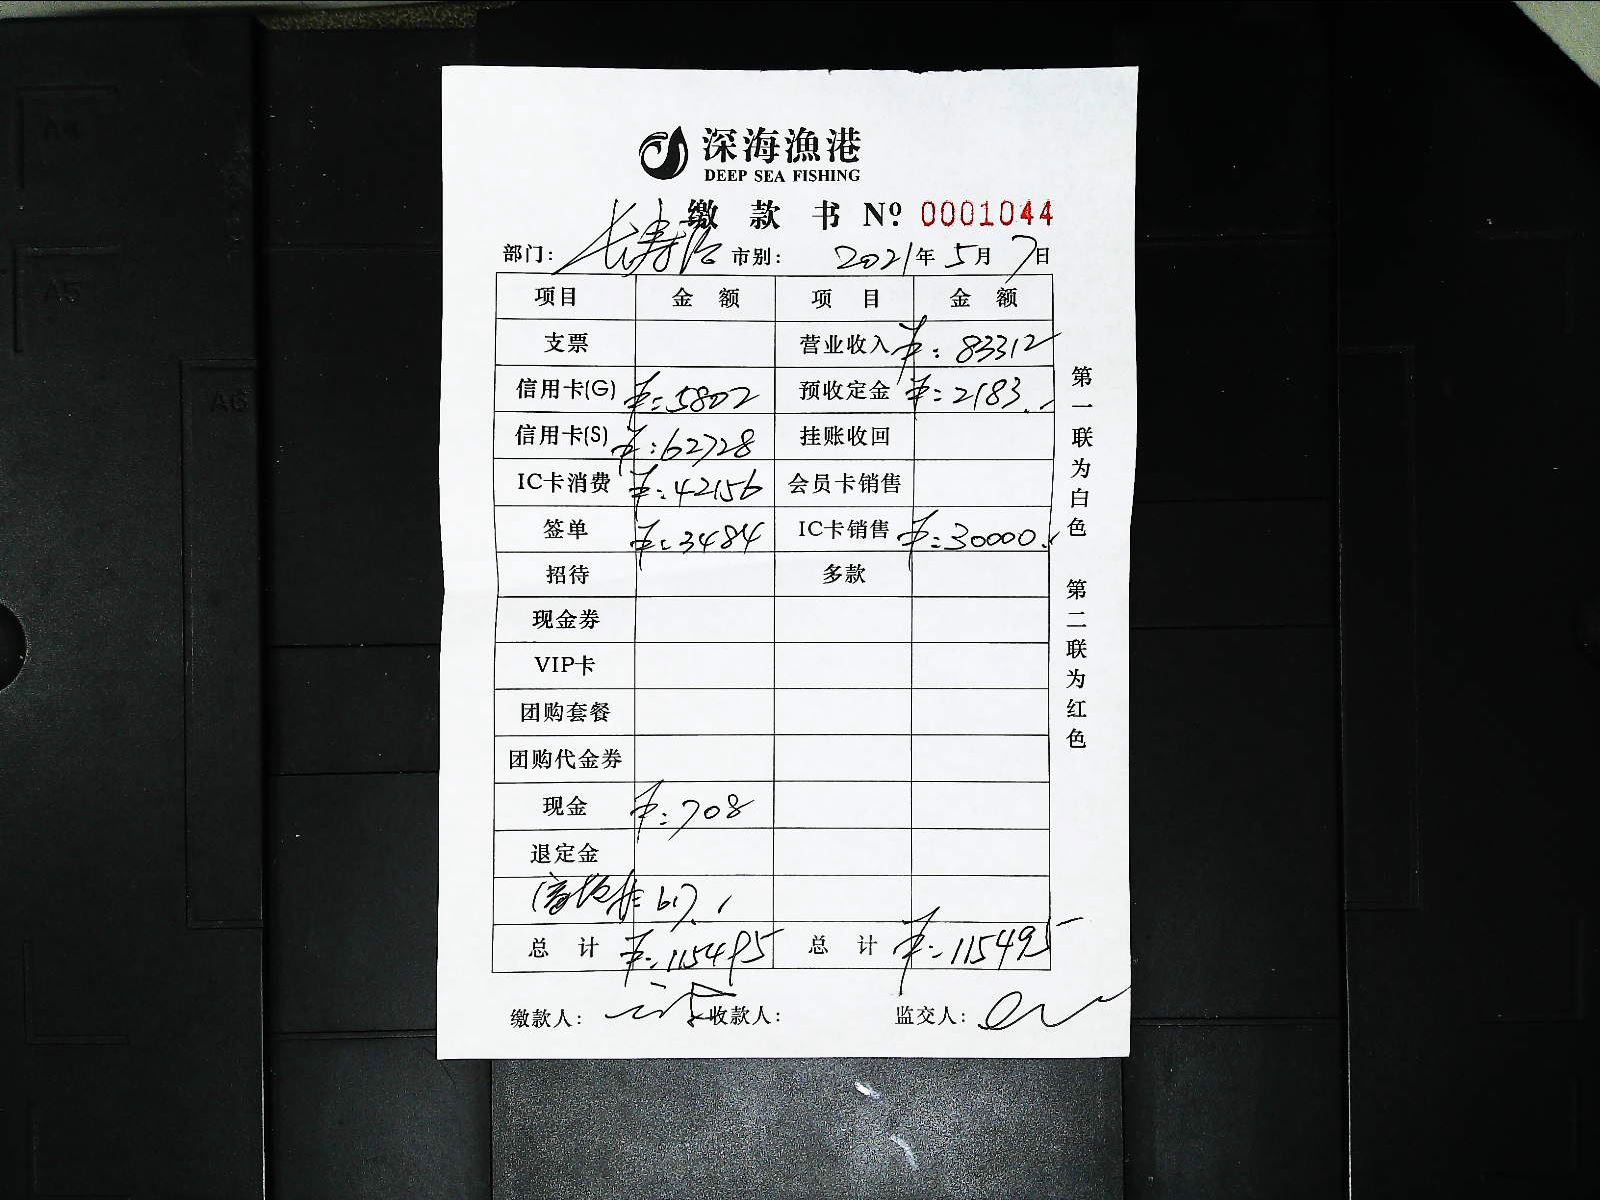 深海漁港
DEEP SEA FISHING
缴款书 Nº 0001044
部门: 长寿路 市别: 2021年5月7日
项目 金额 项目 金额
支票 营业收入 ¥:83312
信用卡(G) ¥:5802 预收定金 ¥:2183.
信用卡(S) ¥:62728 挂账收回
IC卡消费 ¥:42156 会员卡销售
签单 ¥:3484 IC卡销售 ¥:30000.
招待 多款
现金券
VIP卡
团购套餐
团购代金券
现金 ¥:708
退定金
617.
总计 ¥:115495 总计 ¥:115495
缴款人: 收款人: 监交人:
第一联为白色 第二联为红色